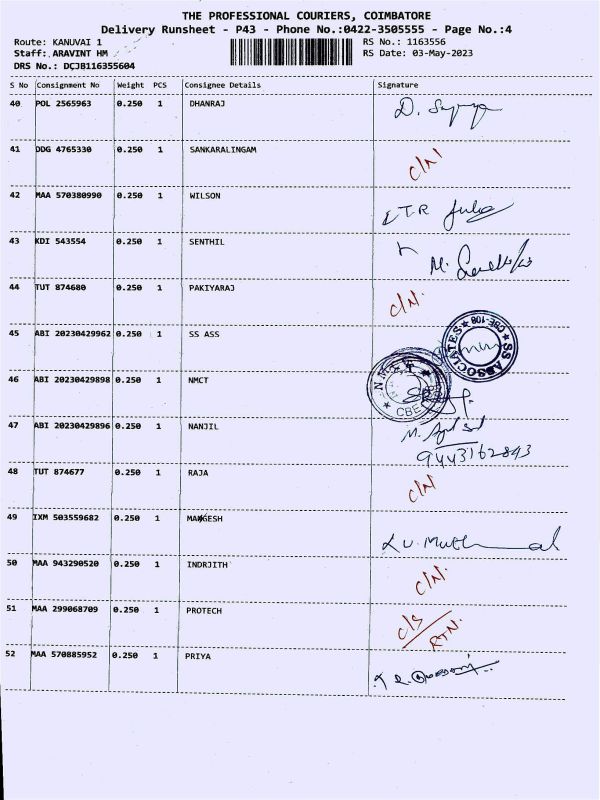 THE PROFESSIONAL COURIERS, COIMBATORE
Delivery Runsheet - P43 - Phone No.:0422-3505555 - Page No.:4
Route: KANUVAI 1 RS No.: 1163556
Staff: ARAVINT HM RS Date: 03-May-2023
DRS No.: DCJB116355604
S No Consignment No Weight PCS Consignee Details Signature
40 POL 2565963 0.250 1 DHANRAJ D.
41 DDG 4765330 0.250 1 SANKARALINGAM C/N
42 MAA 570380990 0.250 1 WILSON
43 KDI 543554 0.250 1 SENTHIL M.
44 TUT 874680 0.250 1 PAKIYARAJ C/N.
45 ABI 20230429962 0.250 1 SS ASS SS ASSOCIATES ★ CBE-108 ★
46 ABI 20230429898 0.250 1 NMCT CBE
47 ABI 20230429896 0.250 1 NANJIL M.
9443162843
48 TUT 874677 0.250 1 RAJA C/N
49 IXM 503559682 0.250 1 MANGESH
50 MAA 943290520 0.250 1 INDRJITH C/N.
51 MAA 299068709 0.250 1 PROTECH C/S
RTN.
52 MAA 570885952 0.250 1 PRIYA